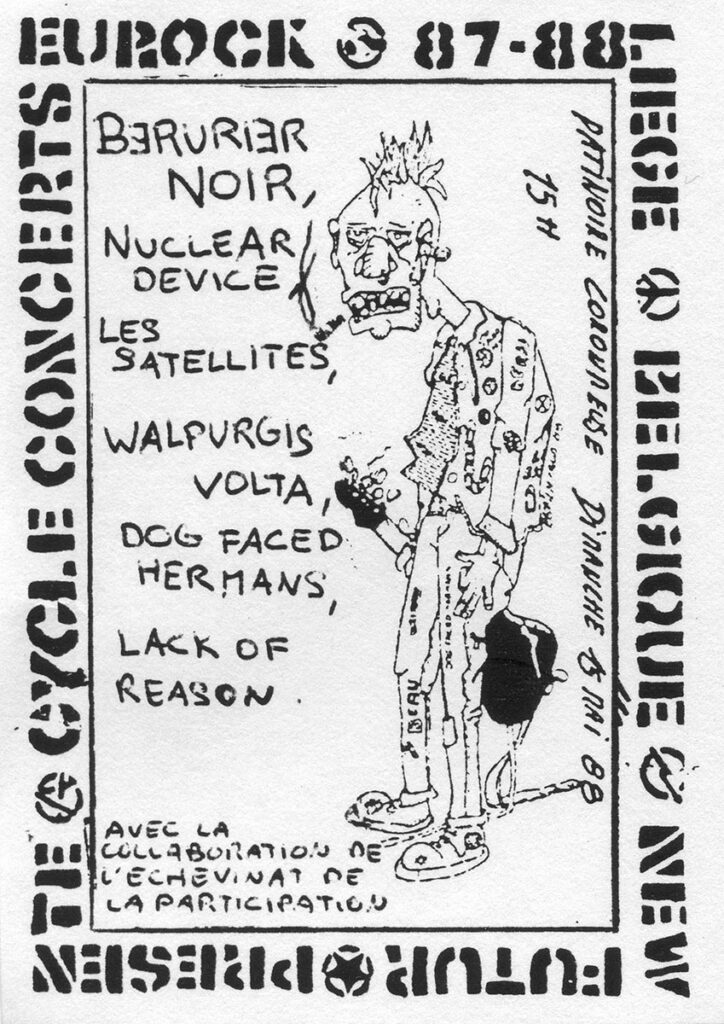 EUROCK 87-88
LIEGE BELGIQUE NEW
FUTUR PRESEN
TE CYCLE CONCERTS
BERURIER
NOIR,
NUCLEAR
DEVICE
LES
SATELLITES,
WALPURGIS
VOLTA,
DOG FACED
HERMANS,
LACK OF
REASON.
PATINOIRE CORONMEUSE DIMANCHE 15 MAI 88
15 H
BERU
AVEC LA
COLLABORATION DE
L'ECHEVINAT DE
LA PARTICIPATION